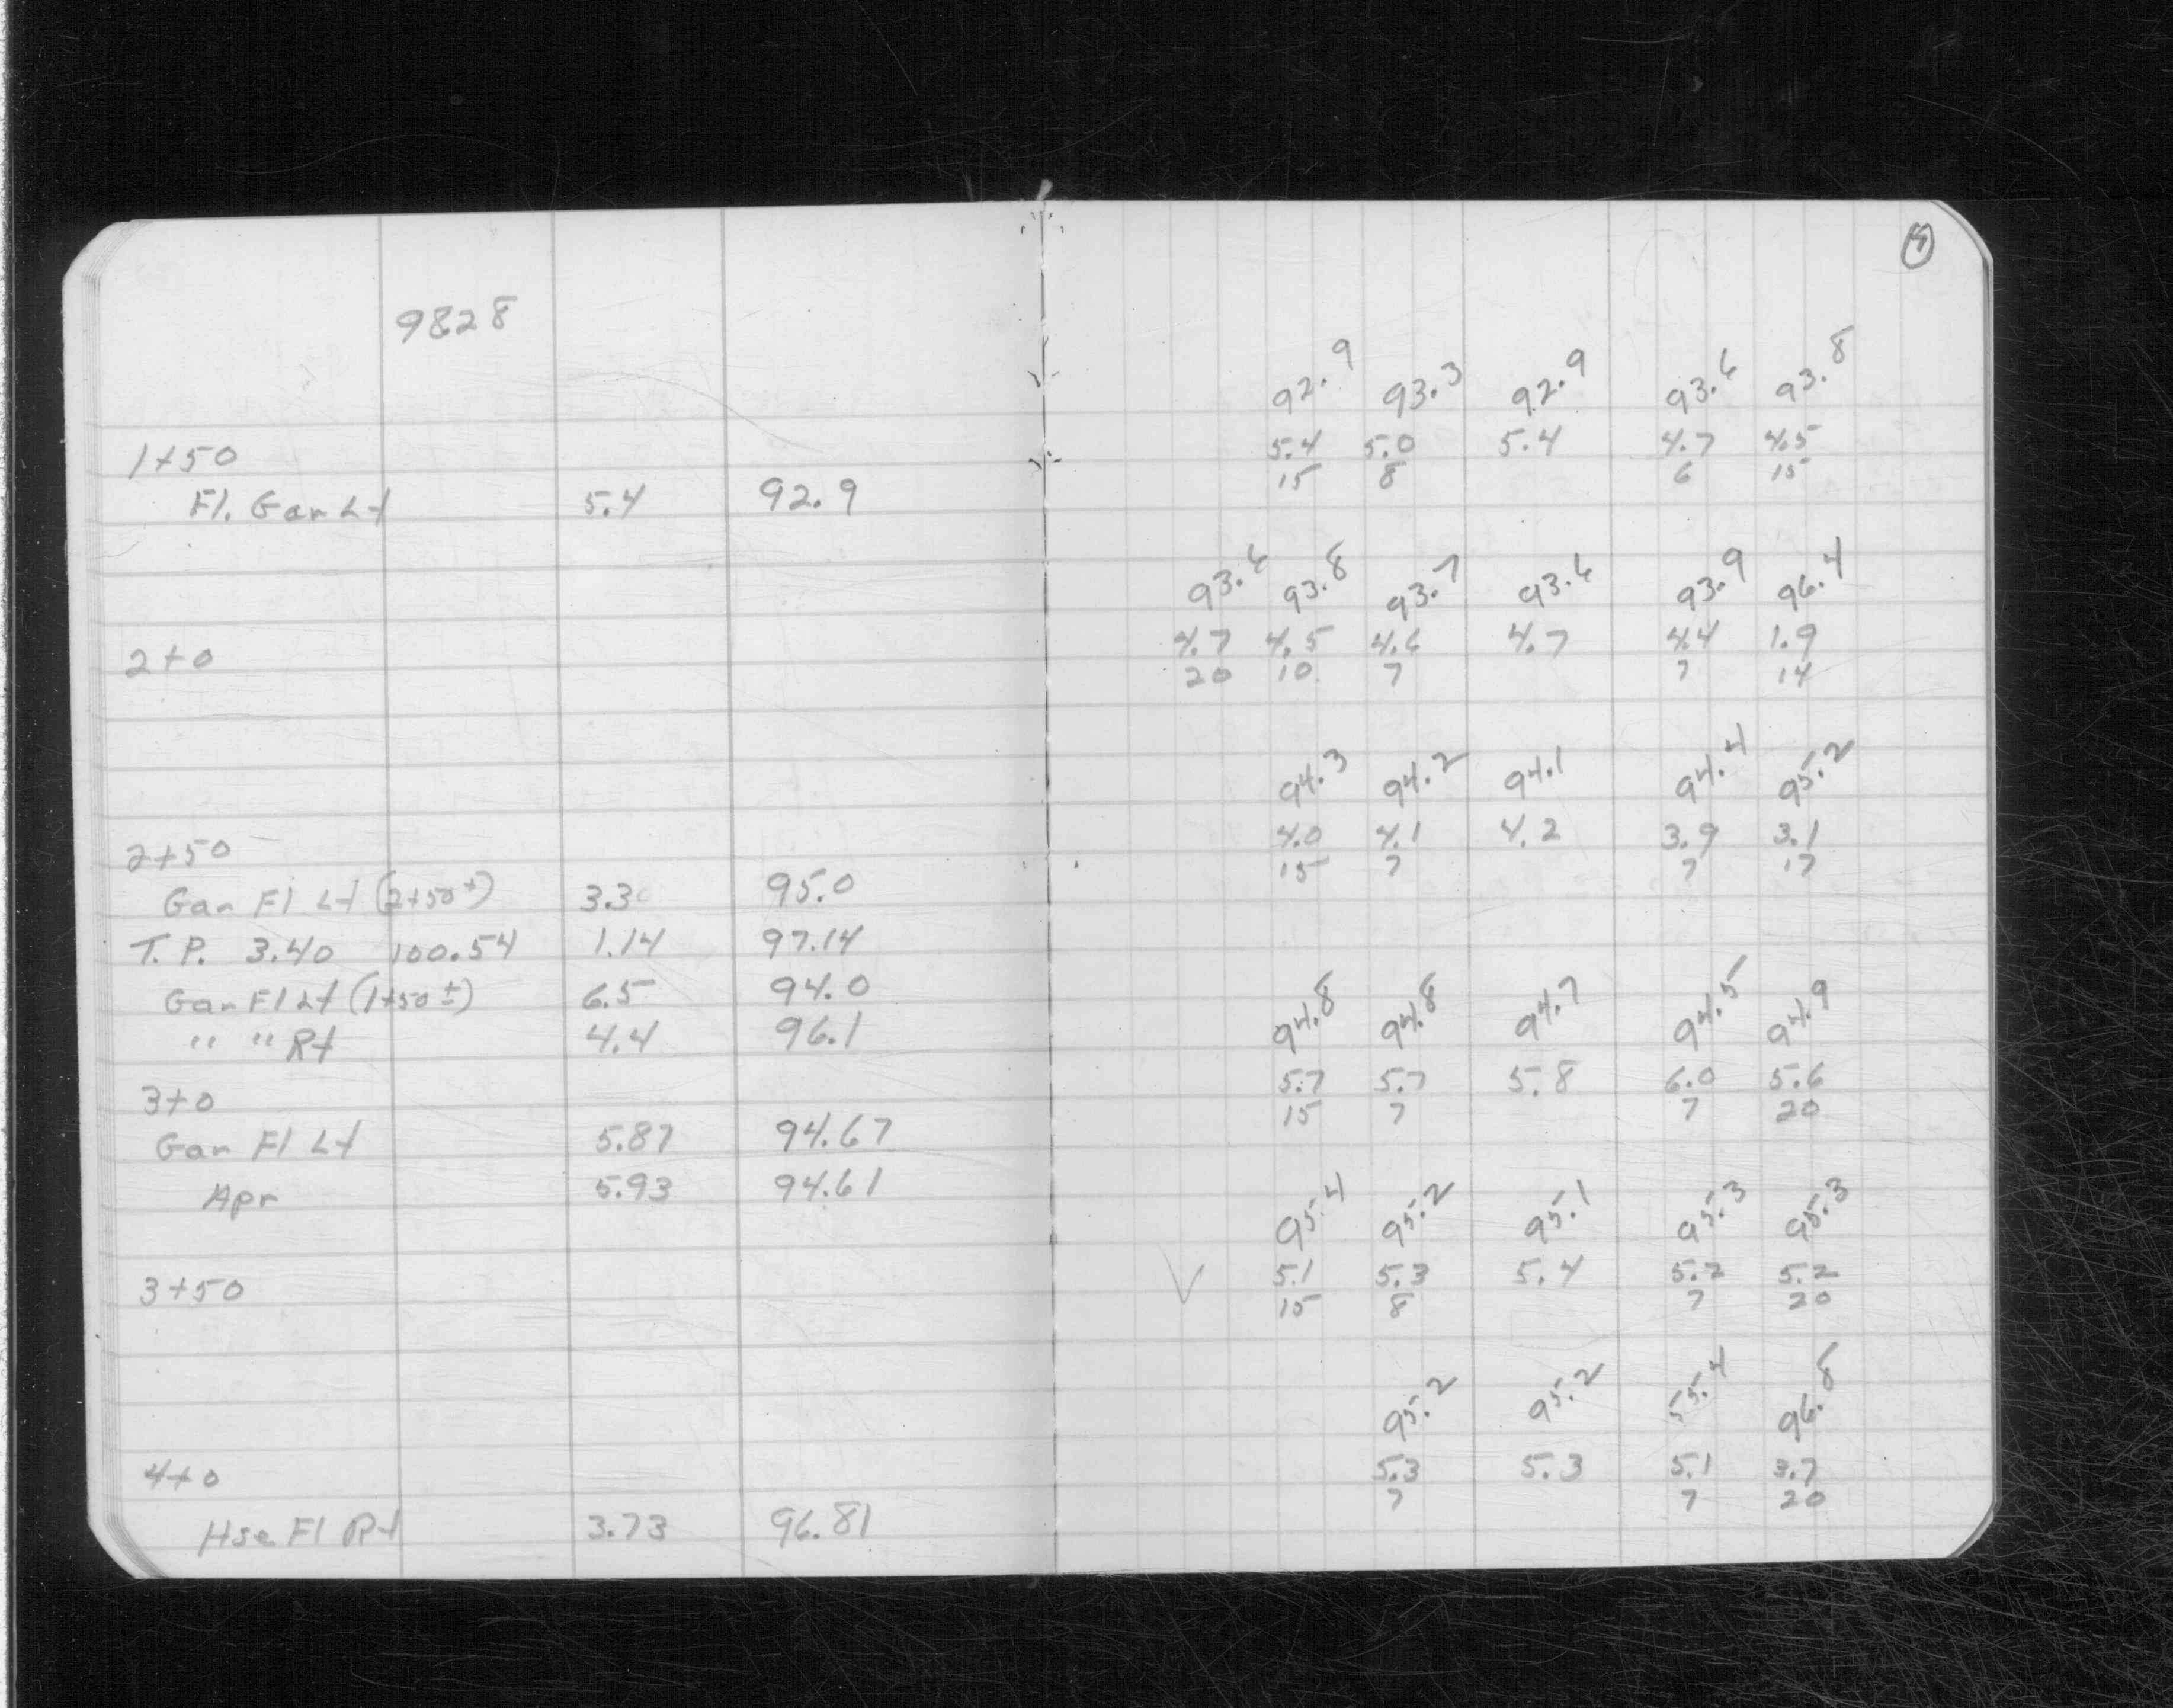 4
9828
92.9 93.3 92.9 93.6 93.8
1+50 5.4 5.0 5.4 4.7 4.5
15 8 6 15
Fl. Gar Lt 5.4 92.9
93.6 93.8 93.7 93.6 93.9 96.4
2+0 4.7 4.5 4.6 4.7 4.4 1.9
20 10 7 7 14
94.3 94.2 94.1 94.4 95.2
2+50 4.0 4.1 4.2 3.9 3.1
15 7 7 17
Gar Fl Lt (2+50±) 3.3 95.0
T.P. 3.40 100.54 1.14 97.14
Gar Fl Lt (1+50±) 6.5 94.0
" " Rt 4.4 96.1
94.8 94.8 94.7 94.5 94.9
3+0 5.7 5.7 5.8 6.0 5.6
15 7 7 20
Gar Fl Lt 5.87 94.67
Apr 5.93 94.61
95.4 95.2 95.1 95.3 95.3
3+50 √ 5.1 5.3 5.4 5.2 5.2
15 8 7 20
95.2 95.2 55.4 96.8
4+0 5.3 5.3 5.1 3.7
7 7 20
Hse Fl Rt 3.73 96.81